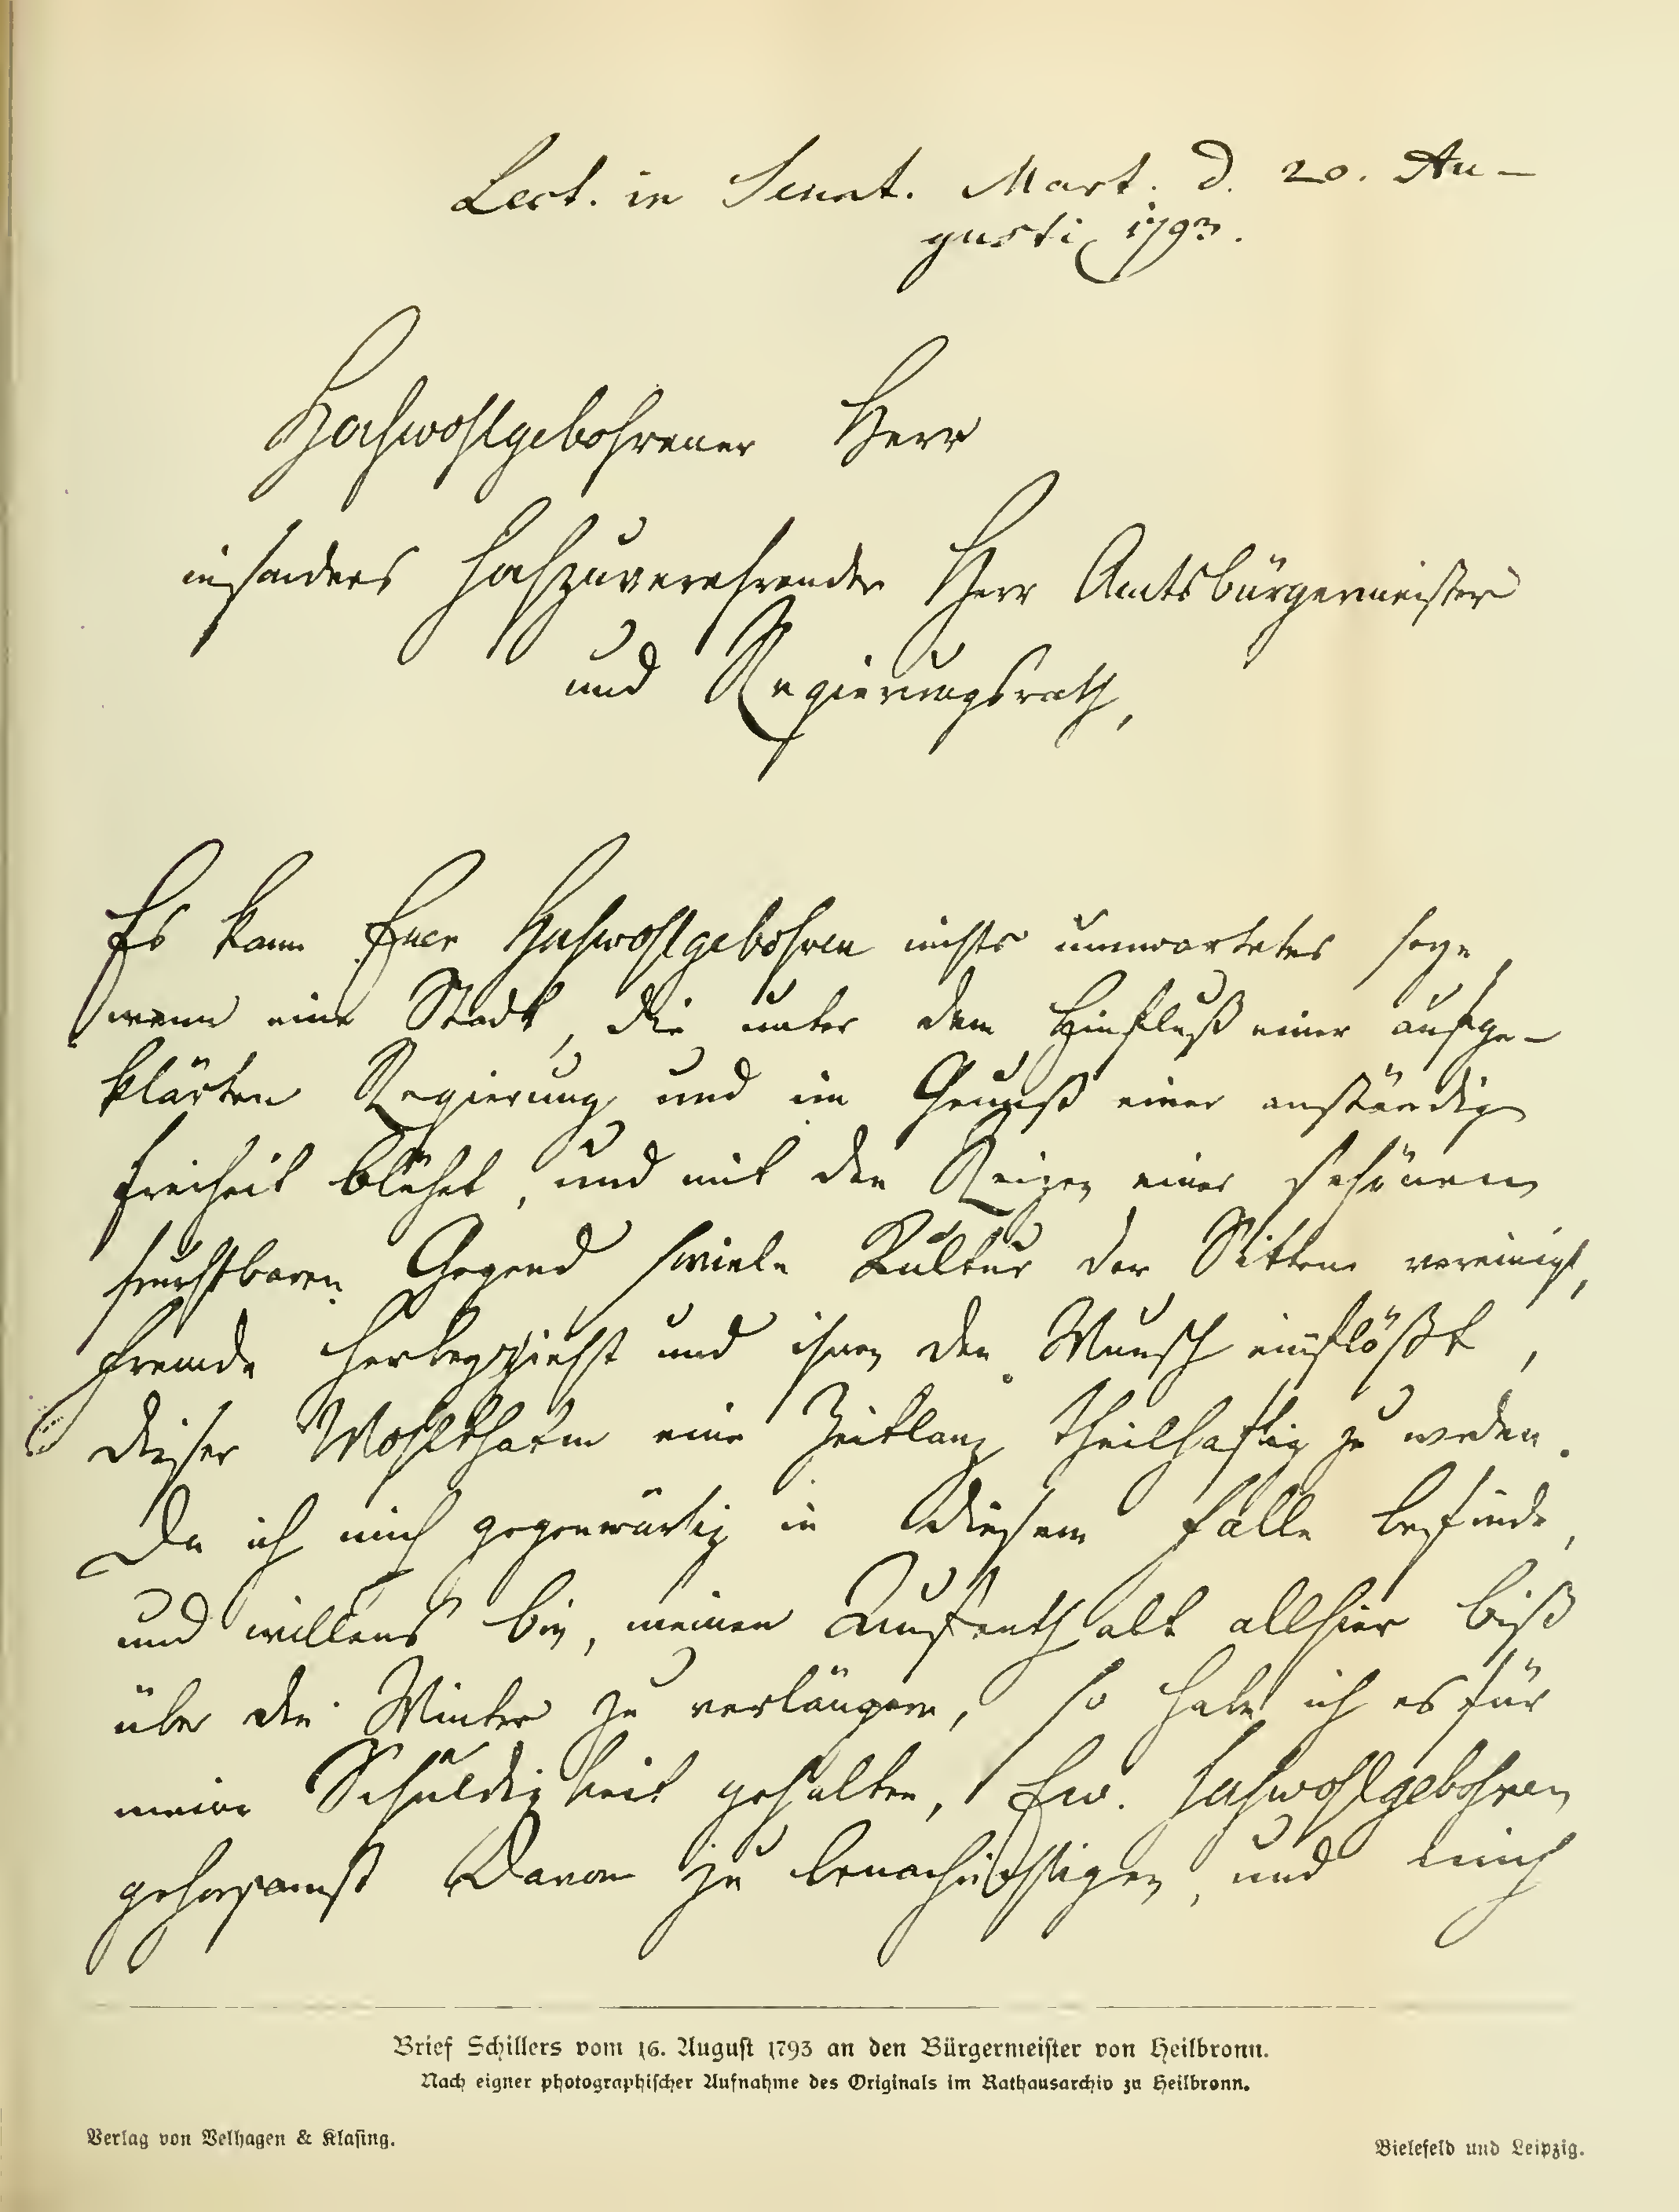 Lect. in Senat. Mart. d. 20. Au-
gusti 1793.
Hochwohlgebohrener Herr
insonders hochzuverehrender Herr Amtsbürgermeister
und Regierungsrath,
Es kann Euer Hochwohlgebohren nichts unerwartetes seyn,
wenn eine Stadt, die unter dem Einfluß einer aufge-
klärten Regierung und im Genuß einer anständigen
Freiheit blühet, und mit den Reizen einer schönen
fruchtbaren Gegend soviele Kultur der Sitten vereinigt,
Fremde herbeyzieht und ihnen den Wunsch einflößt,
dieser Wohlthat eine Zeitlang theilhaftig zu werden.
Da ich mich gegenwärtig in diesem Falle befinde,
und willens bin, meinen Aufenthalt allhier biß
über den Winter zu verlängern, so habe ich es für
meine Schuldigkeit gehalten, Ew. Hochwohlgebohren
gehorsamst davon zu benachrichtigen, und mich
Brief Schillers vom 16. August 1793 an den Bürgermeister von Heilbronn.
Nach eigner photographischer Aufnahme des Originals im Rathausarchiv zu Heilbronn.
Verlag von Velhagen & Klasing.
Bielefeld und Leipzig.